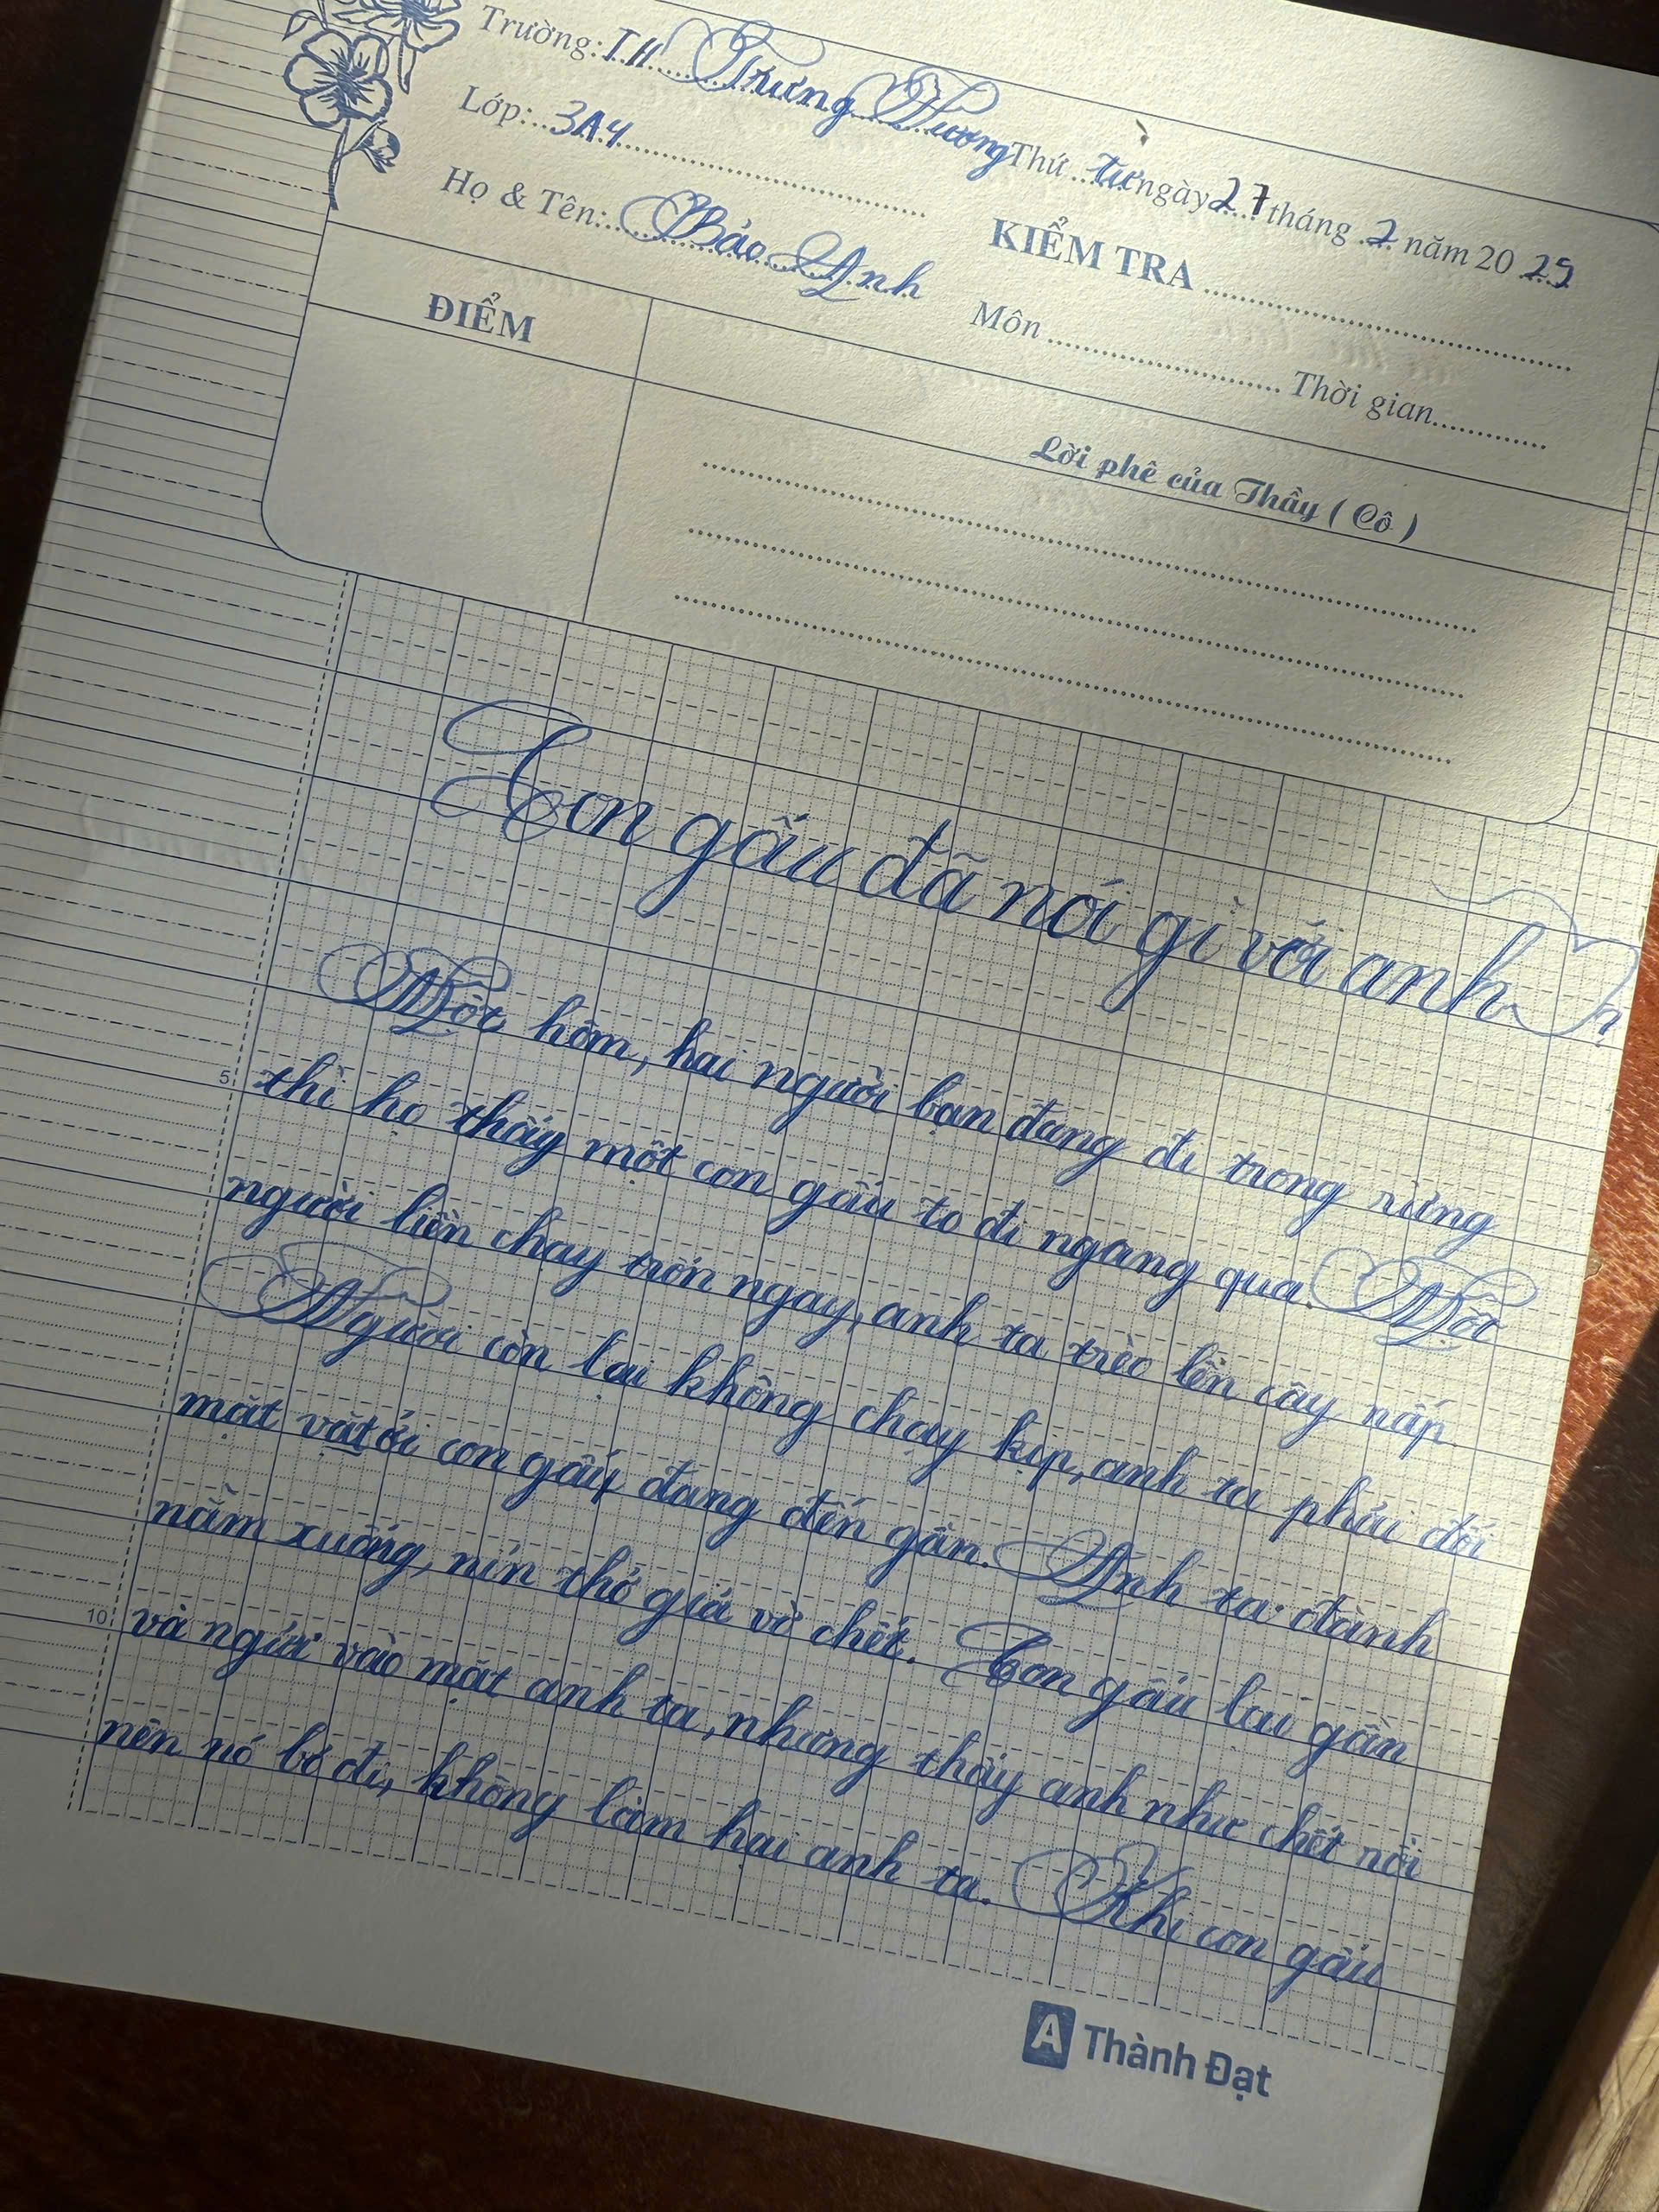 Trường: TH Trưng Vương
Lớp: 3A4
Họ & Tên: Bảo Anh
Thứ tư ngày 27 tháng 2 năm 2025
KIỂM TRA
Môn Thời gian
ĐIỂM
Lời phê của Thầy ( Cô )
Con gấu đã nói gì với anh
Một hôm, hai người bạn đang đi trong rừng
5 thì họ thấy một con gấu to đi ngang qua. Một
người liền chạy trốn ngay, anh ta trèo lên cây nấp
Người còn lại không chạy kịp, anh ta phải đối
mặt với con gấu đang đến gần. Anh ta đành
nằm xuống, nín thở giả vờ chết. Con gấu lại gần
10 và ngửi vào mặt anh ta, nhưng thấy anh như chết rồi
nên nó bỏ đi, không làm hại anh ta. Khi con gấu
A Thành Đạt